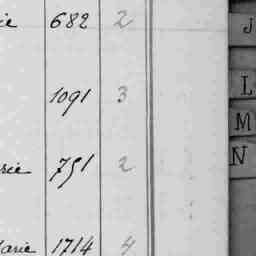 ie 682 2
1091 3
rie 751 2
Marie 1714 4
J
L
M
N